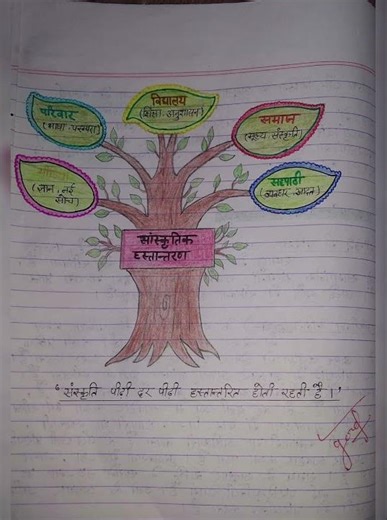 विद्यालय
(शिक्षा, अनुशासन)
परिवार
(भाषा परम्परा)
समाज
(मूल्य संस्कृति)
(ज्ञान, नई
सोच)
सहपाठी
(व्यवहार, आदत)
सांस्कृतिक
हस्तान्तरण
'संस्कृति पीढ़ी दर पीढ़ी हस्तान्तरित होती रहती है।'